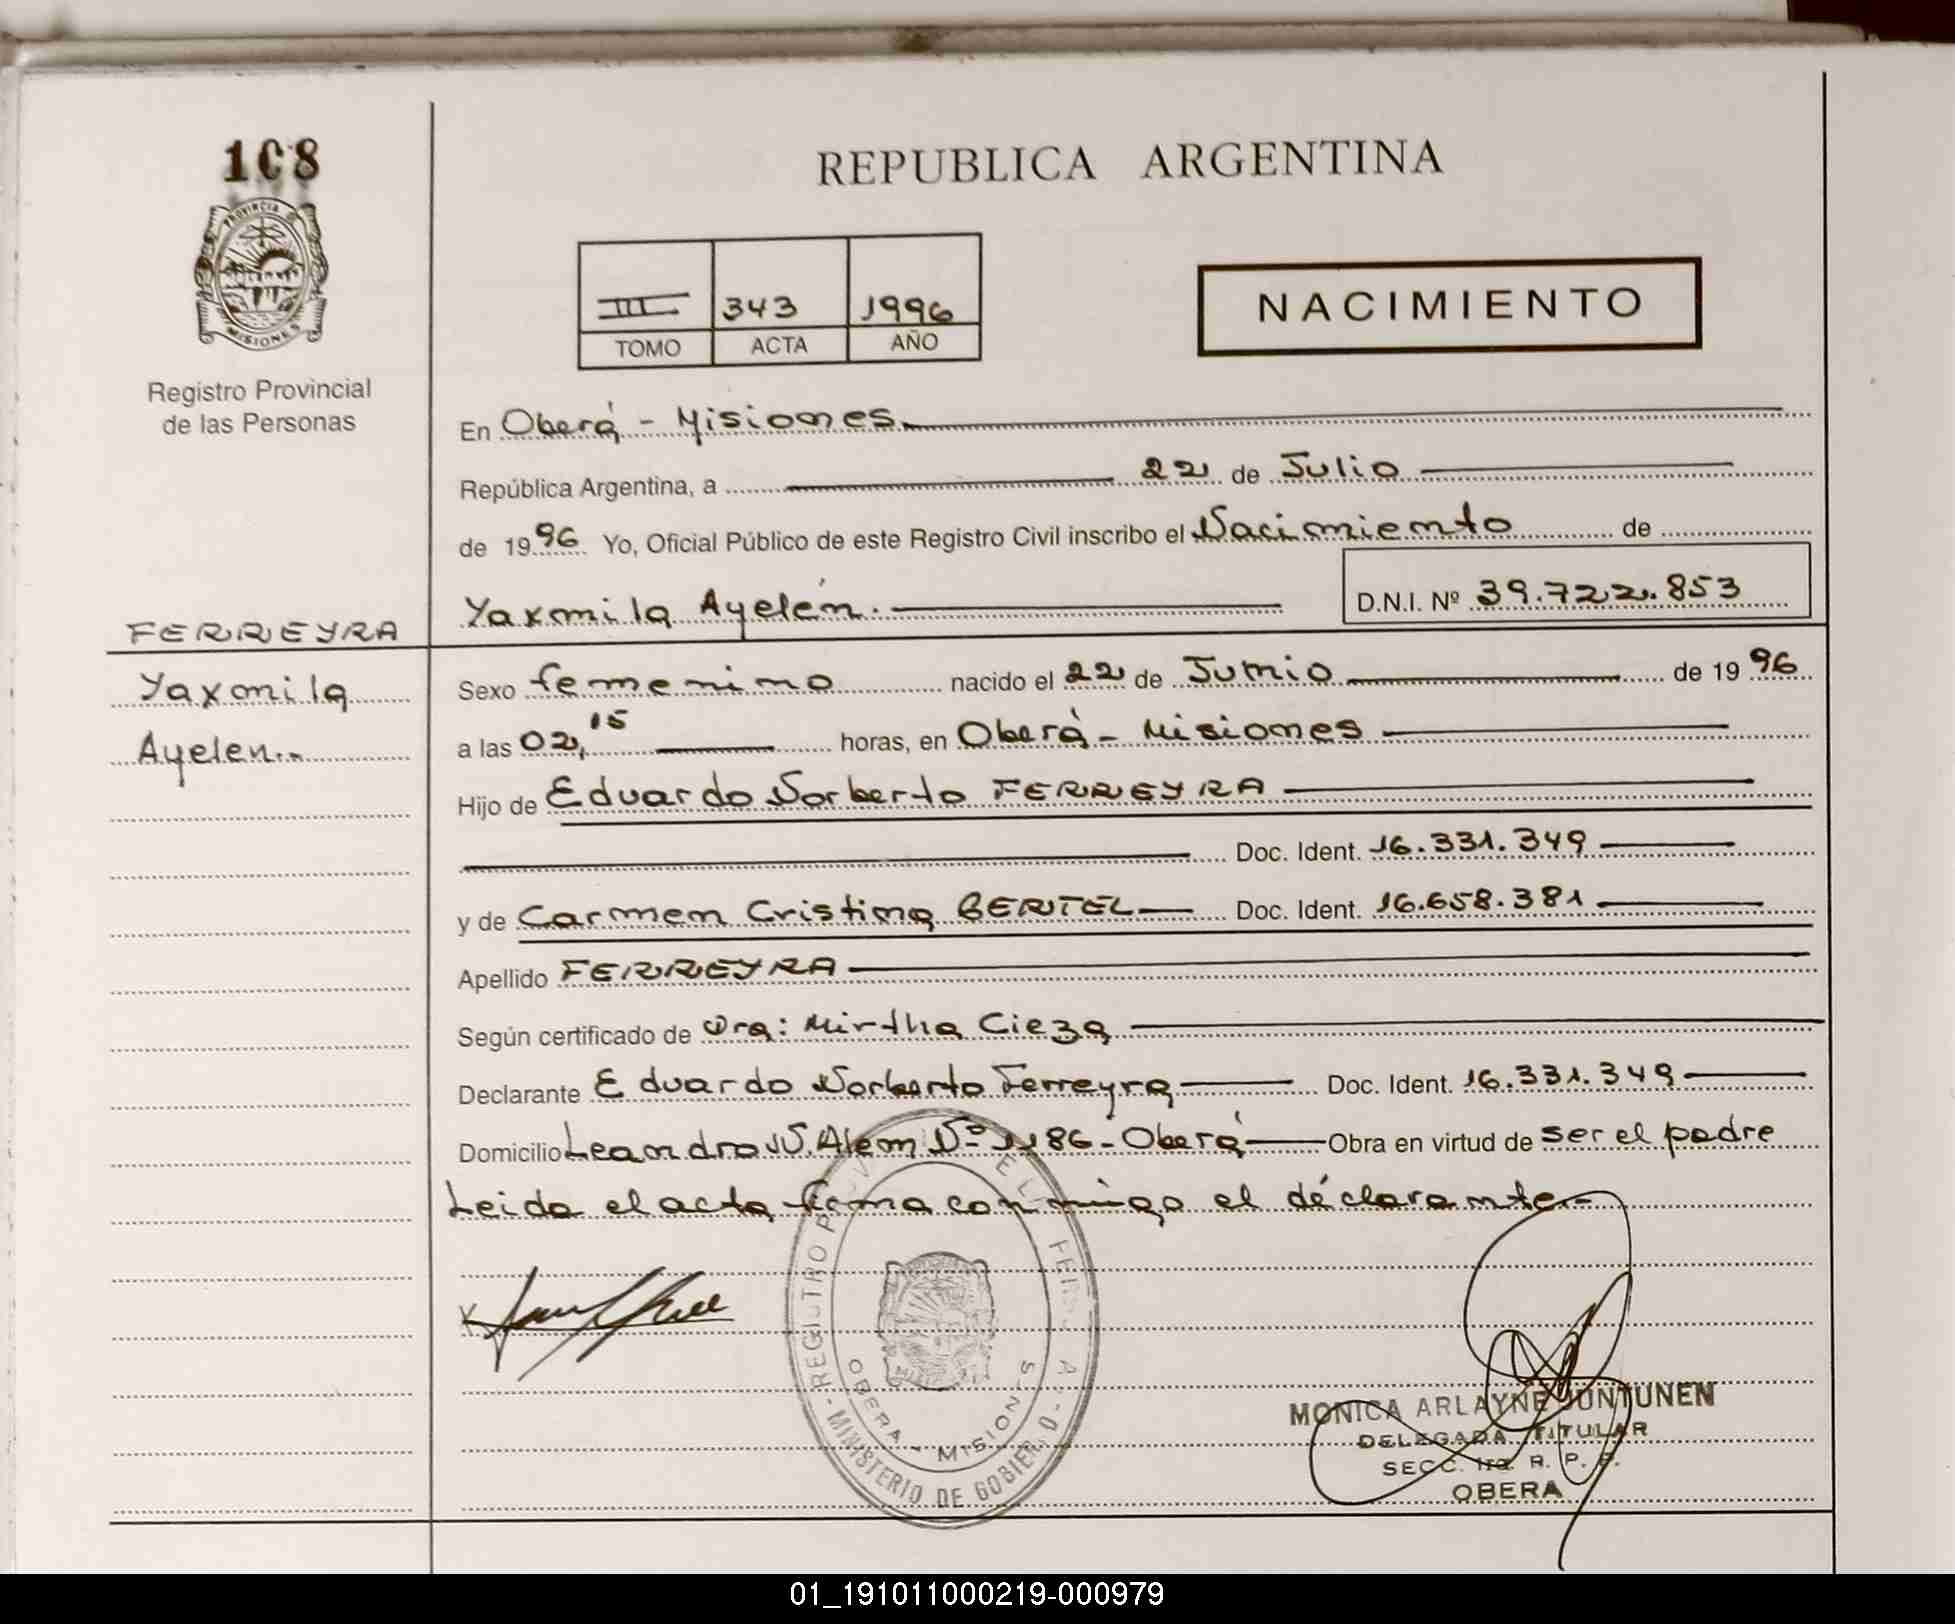 108
REPUBLICA ARGENTINA
PROVINCIA DE
MISIONES
Registro Provincial
de las Personas
III 343 1996
TOMO ACTA AÑO
NACIMIENTO
En Oberá - Misiones
República Argentina, a 22 de Julio
de 1996 Yo, Oficial Público de este Registro Civil inscribo el Nacimiento de
Yaxmila Ayelén. D.N.I. Nº 39.722.853
FERREYRA
Yaxmila
Ayelen..
Sexo femenino nacido el 22 de Junio de 1996
a las 02,15 horas, en Oberá - Misiones
Hijo de Eduardo Norberto FERREYRA
Doc. Ident. 16.331.349
y de Carmen Cristina BERTEL Doc. Ident. 16.658.381
Apellido FERREYRA
Según certificado de Dra: Mirtha Cieza
Declarante Eduardo Norberto Ferreyra Doc. Ident. 16.331.349
Domicilio Leandro N. Alem Nº 1186 - Oberá Obra en virtud de ser el padre
Leida el acta firma conmigo el declarante-
OBERA - MISIONES
MINISTERIO DE GOBIERNO
MONICA ARLAYNE JUNTUNEN
DELEGADA TITULAR
SECC. 1ra. R. P. P.
OBERA
01_191011000219-000979